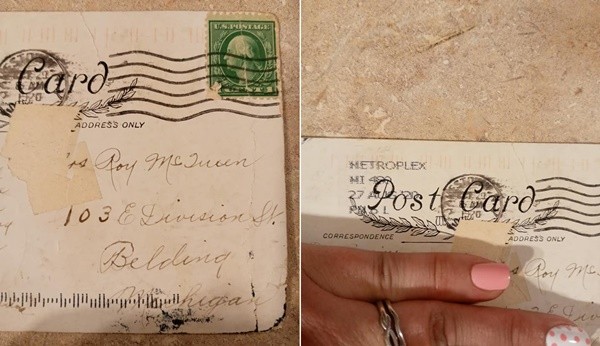 Card
U.S. POSTAGE
ADDRESS ONLY
Roy McQueen
103 E Division St.
Belding
Michigan
METROPLEX
MI 480
Post Card
CORRESPONDENCE
ADDRESS ONLY
Roy McQ
E Div